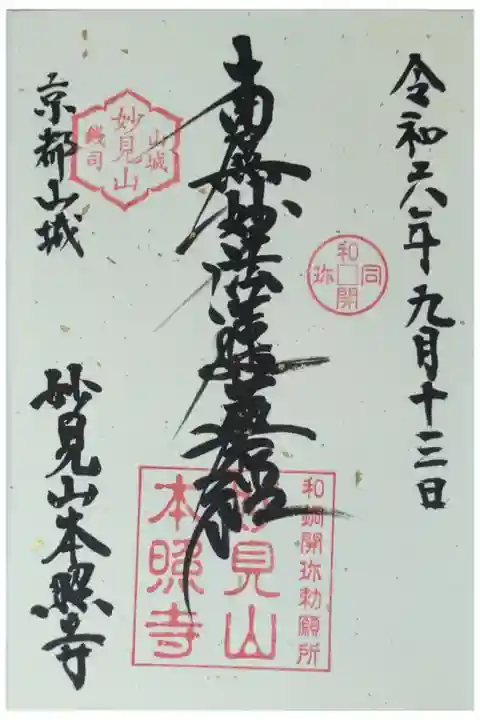 令和六年九月十三日
和同開珎
南無妙法蓮華経
和銅開珎勅願所
妙見山
本照寺
山城
妙見山
銭司
京都山城
妙見山本照寺